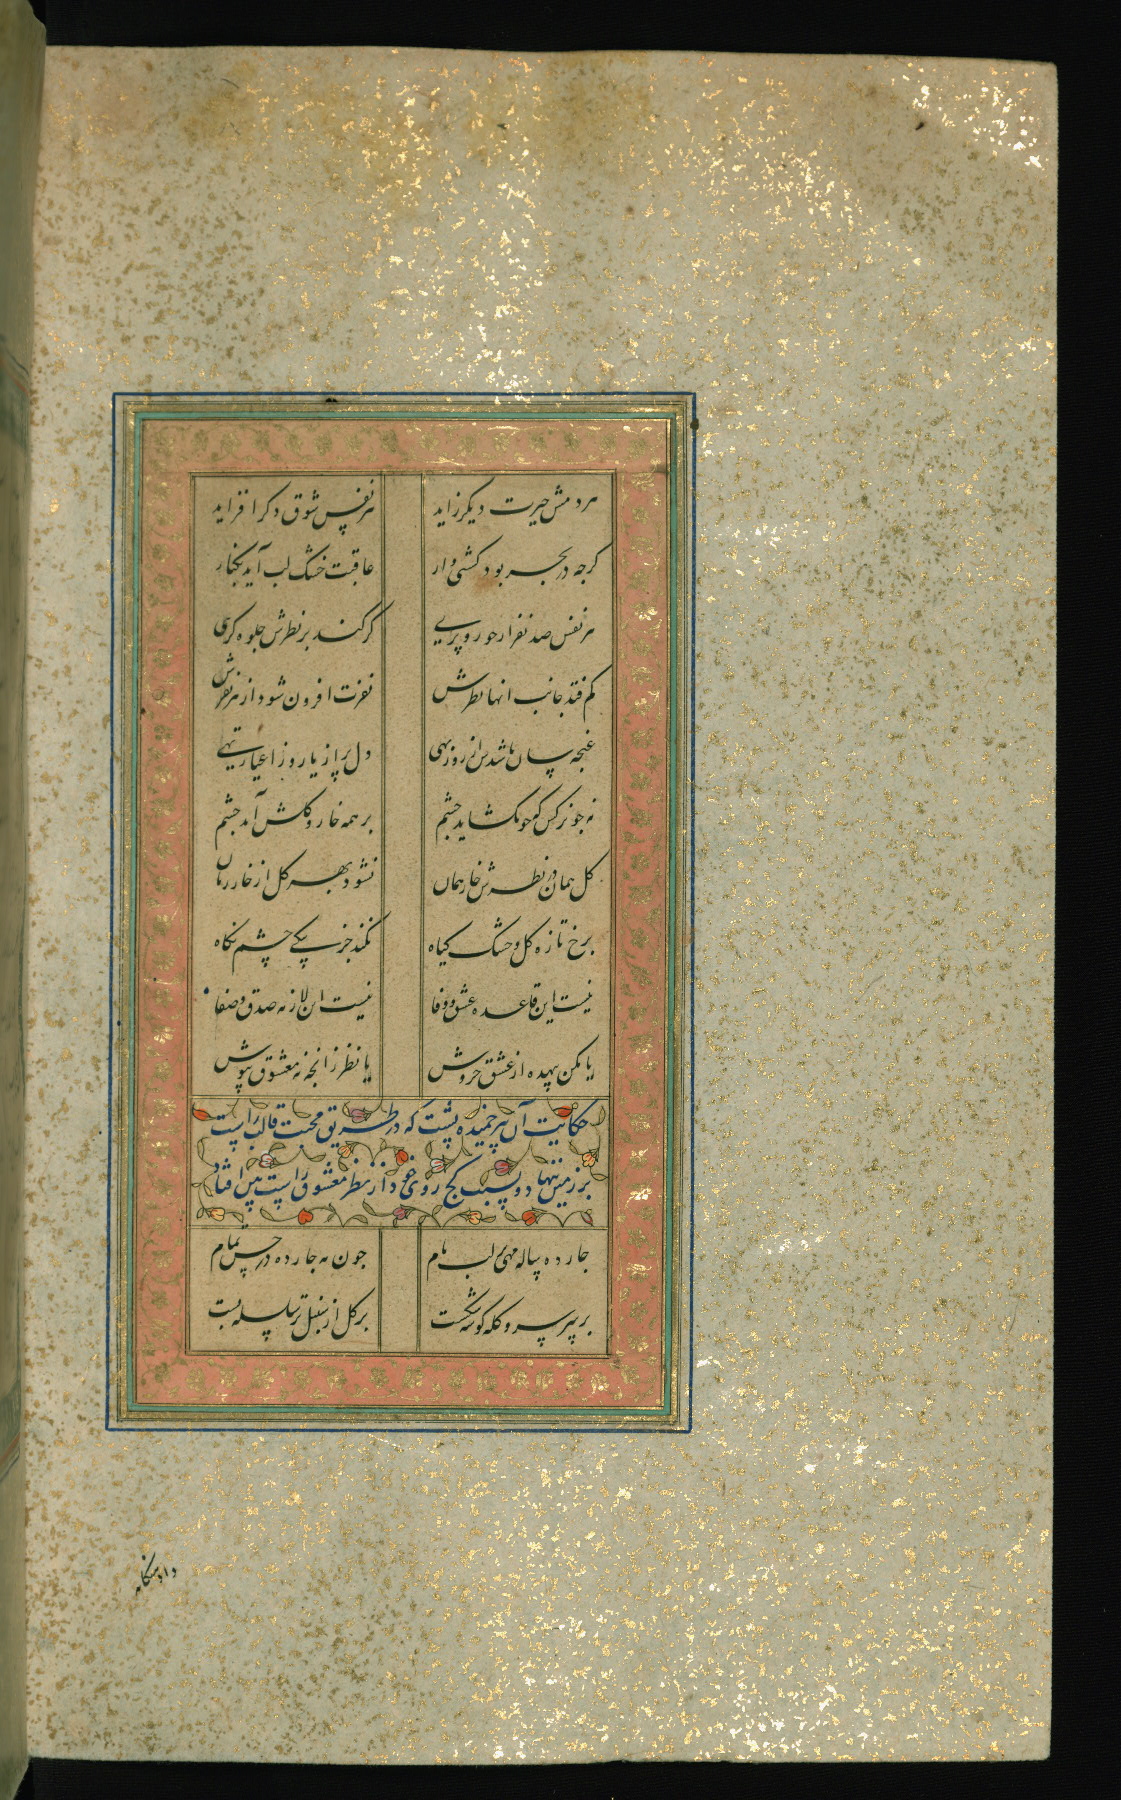 هر دمش حیرت دیگر زاید هر نفس شوق دگر افزاید
کرچه در بحر بود کشتی وار عاقبت خشک لب آید بکنار
هر نفس صد نفر از حور و پری گر کند بر نظرش جلوه گری
کم فتد جانب انها نظرش نفرت افزون شود از هر نفرش
غنچه سان باشدش از روز بهی دل پر از یار و ز اغیار تهی
نه چو نرکس که چو بکشاید چشم بر همه خار و کلش آید چشم
کل همان در نظرش خار همان نشود بهر کل از خار رمان
برخ تازه کل و خشک کیاه نکند جز بیکی چشم نکاه
نیست این قاعده عشق و وفا نیست این لازمه صدق و صفا
یا مکن بیهده از عشق خروش یا نظر زانچه نه معشوق بپوش
حکایت آن پیر خمیده پشت که در طریق محبت قالب راست
بر زمین ننهاد و بسبب کج روی خود از نظر معشوق راست بین افتاد
چارده ساله مهی بر لب بام چون مه چارده در حسن تمام
بر سر سرو کله کوشه شکست بر کل از سنبل تر سلسله بست
داد هنکامه